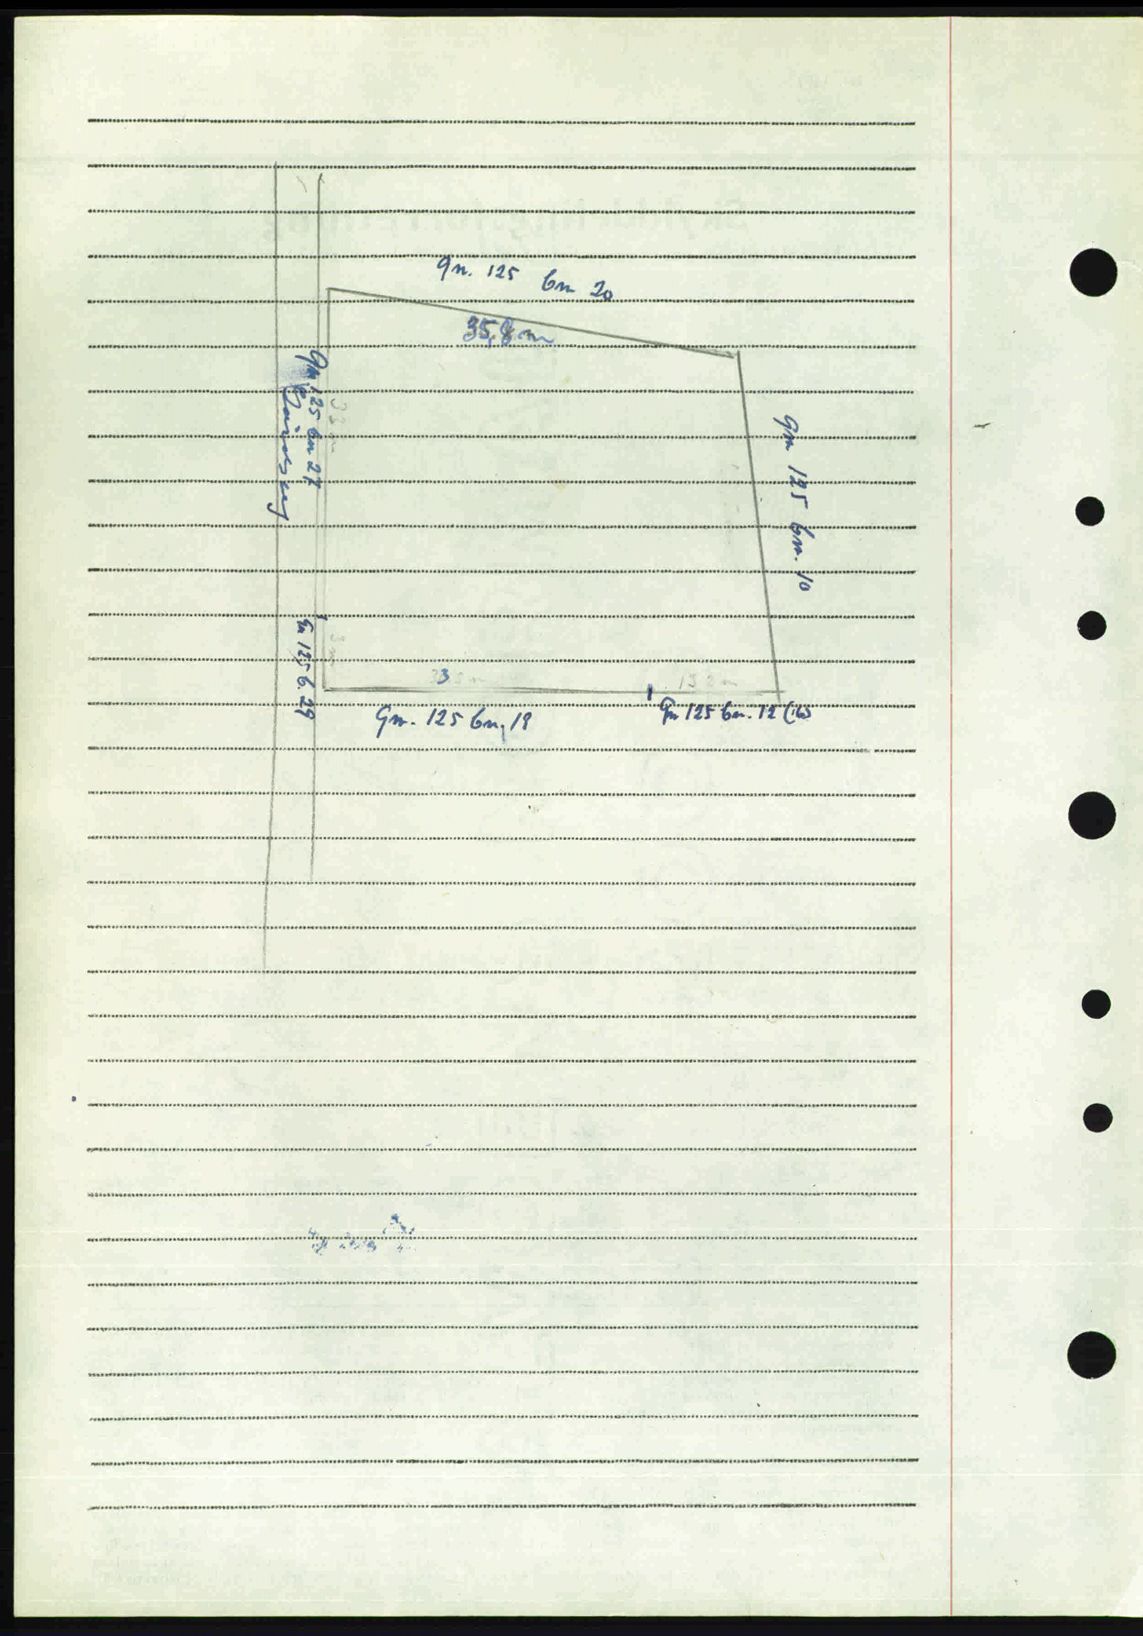 gn. 125 bn 20
35,8 m
gn 125 bn 27
33 m
gn 125 bn. 10
gn 125 b. 29
3 m
3
gn. 125 bn, 19
gn 125 bn. 12 (16)